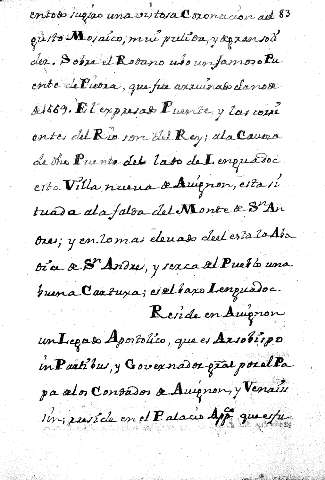 ento de su piso una vistosa Coronacion del 83
gusto Mosaico, mui pulida, y de gran soli
dez. Sobre el Rodano ubo un famoso Pu
ente de Piedra, que fue arruinado el año de
de 1669. El expresado Puente y las corri
entes del Rio son del Rey; a la Caveza
de dho Puente del lado de Lenguadoc
esta Villa nueva de Aviñon, esta si
tuada a la falda del Monte de Sn. An
dres; y en lo mas elevado de el esta la Aba
dia de Sn. Andres, y serca del Pueblo una
buena Cartuxa; es del baxo Lenguadoc.
Reside en Aviñon
un Legado Apostolico, que es Arsobispo
in Partibus, y Governador gral por el Pa
pa de los Condados de Aviñon, y Venaisi
sin; reside en el Palacio Appco. que es fu